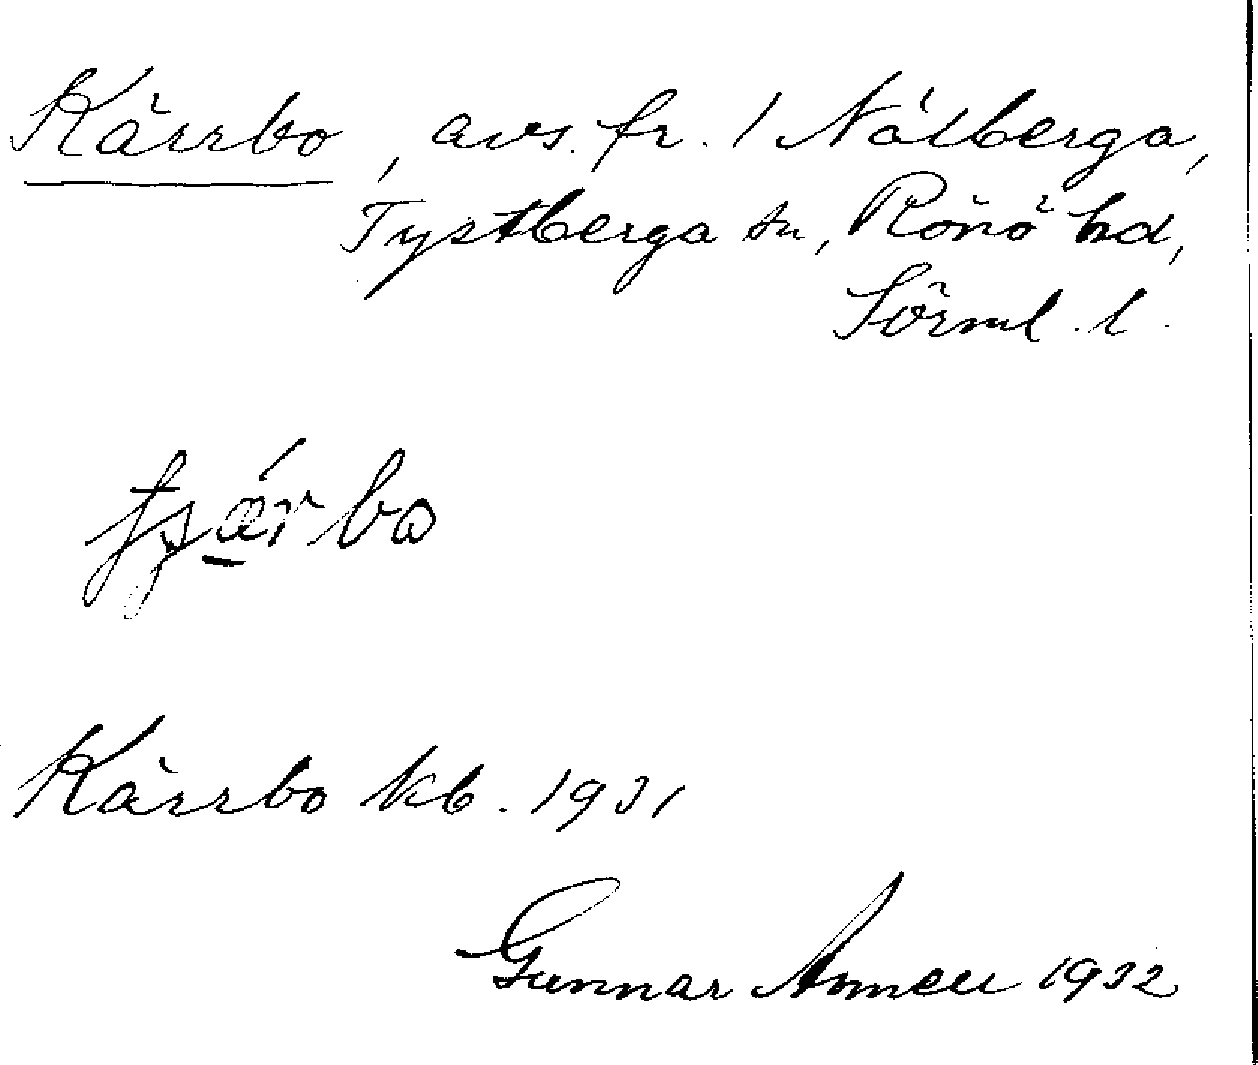 Kärrbo, avs. fr. 1 Nälberga,
Tystberga sn, Rönö hd,
Sörml. l.
Kärrbo kb. 1931
Gunnar 1932